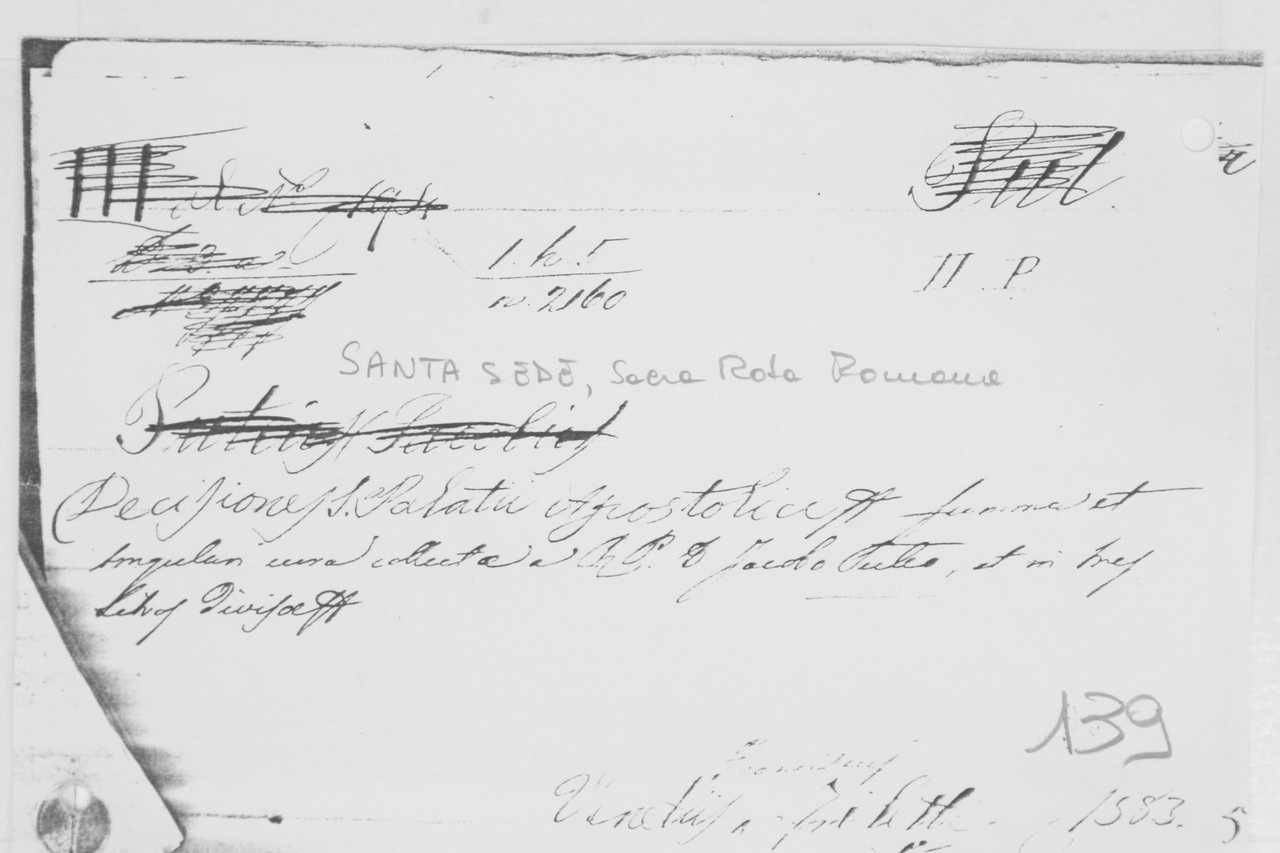 1. h. 5
n. 2160
II P
SANTA SEDE, Sacra Rota Romana
Puteus Jacobus
Decisiones S. Palatii Apostolici summa et
singulari cura collectæ a R. P. D. Jacobo Puteo, et in tres
Libros Divisæ
139
Franciscus
Venetiis a Ziletti 1583. 5